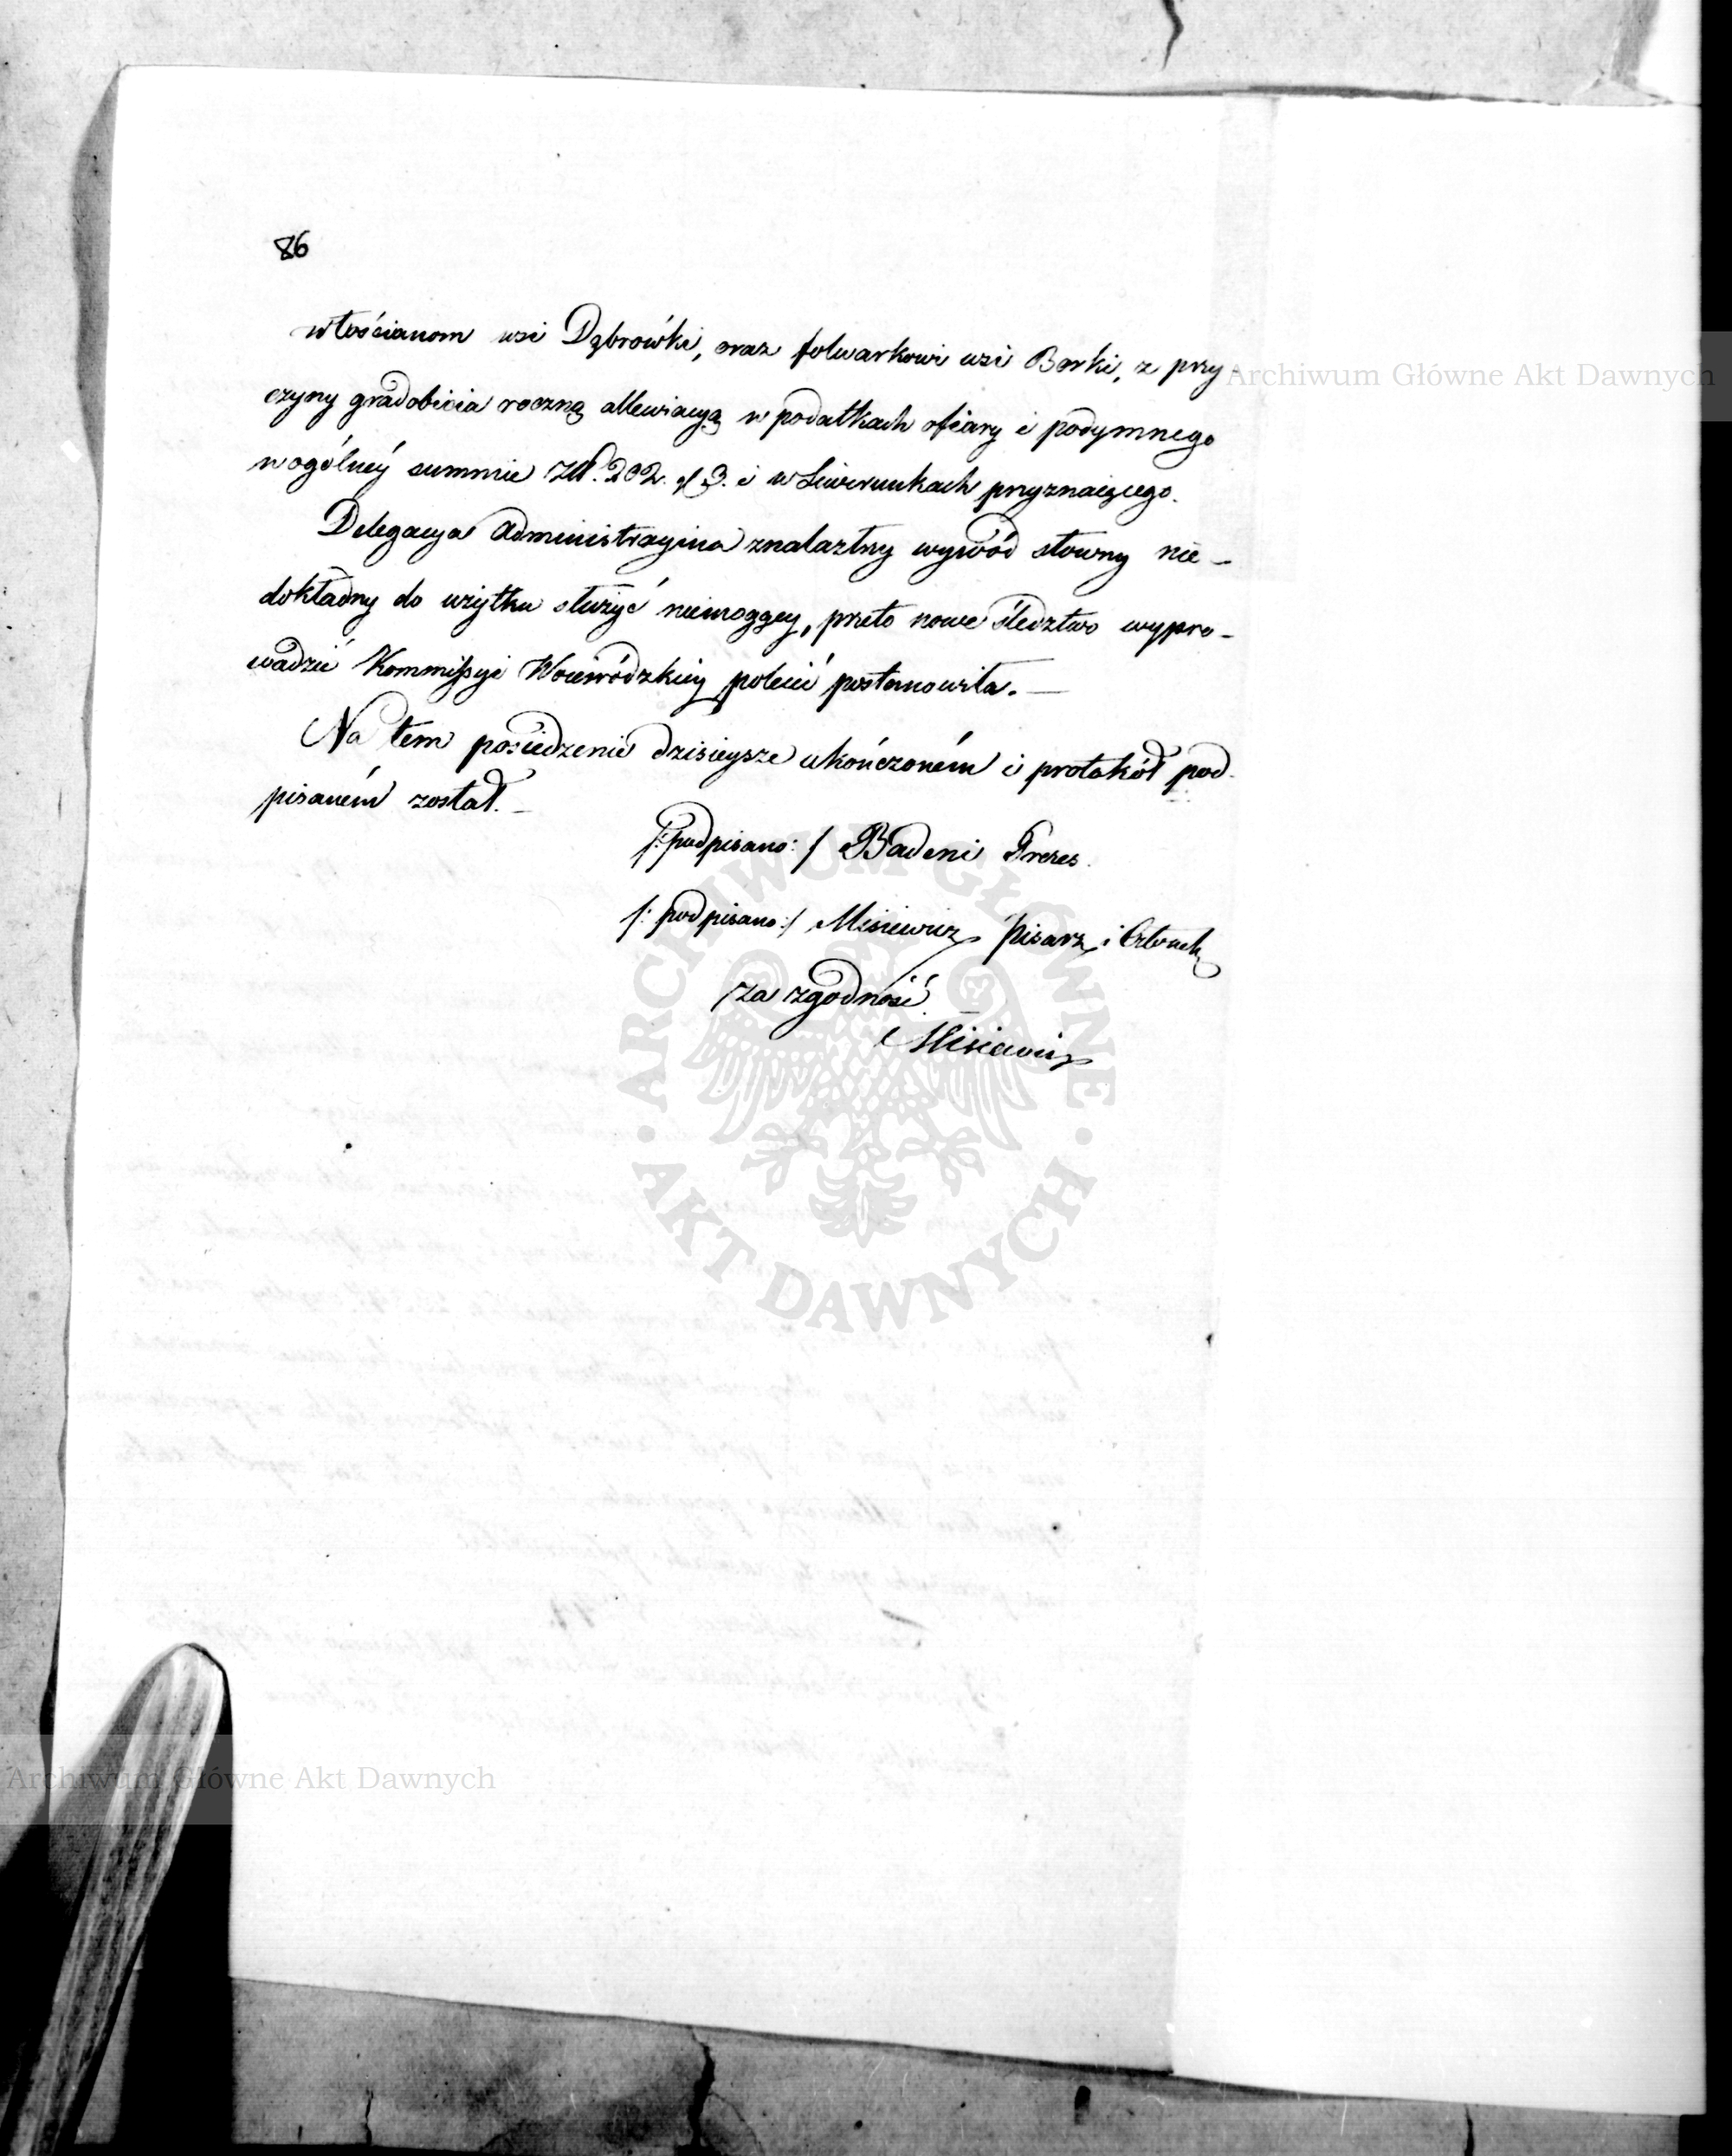 86
włościanom wsi Dąbrówki, oraz folwarkowi wsi Borki, z przy-
czyny gradobicia roczną allewiacyą w podatkach ofiary i podymnego
w ogólney summie Złł. 202. gr 3. i w Liwerunkach przyznaiącego.
Delegacya Administracyina znalazłszy wywód słowny nie-
dokładny do użytku służyć niemogący, przeto nowe śledztwo wypro-
wadzić Kommissyi Woiewódzkiey polecić postanowiła. —
Na tem posiedzenie dzisieysze ukończoném i protokół pod-
pisaném został. —
/: podpisano: / Badeni Prezes.
/: podpisano :/ Misiewicz Pisarz i Członek
Za zgodność
Misiewicz
Archiwum Główne Akt Dawnych
ARCHIWUM GŁÓWNE
• AKT DAWNYCH •
Archiwum Główne Akt Dawnych